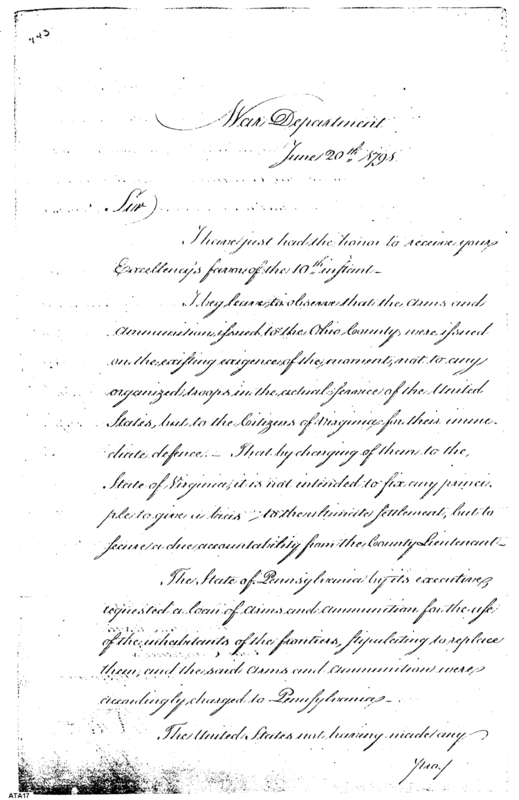 443
War Department
June 20th 1791
Sir
I have just had the honor to receive your
Excellency's favor of the 10th instant—
I beg leave to observe that the arms and
ammunition issued to the Ohio County, were issued
on the existing exigence of the moment, not to any
organized troops in the actual service of the United
States, but to the Citizens of Virginia for their imme-
diate defence.— That by charging of them to the
State of Virginia, it is not intended to fix any princi-
ple to give a bias to the ultimate settlement, but to
secure a due accountability from the County Lieutenant—
The State of Pennsylvania by its executive
requested a loan of arms and ammunition for the use
of the inhabitants of the frontiers, stipulating to replace
them, and the said arms and ammunition were
accordingly charged to Pennsylvania—
The United States not having made any
ATA17